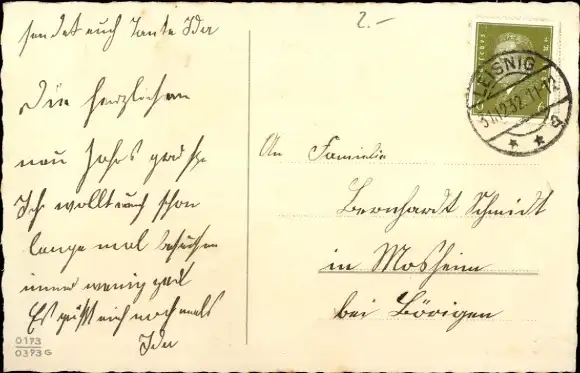 sendet euch Tante Ida
Die herzlichen
neu Jahrs grüße
Ich wollt euch schon
lange mal besuchen
immer wenig
Es grüßt euch nochmals
Ida
0173
0373 G
2.-
LEISNIG
31.12.32.11-12
An Familie
Bernhardt Schmidt
in Mosheim
bei Börigen